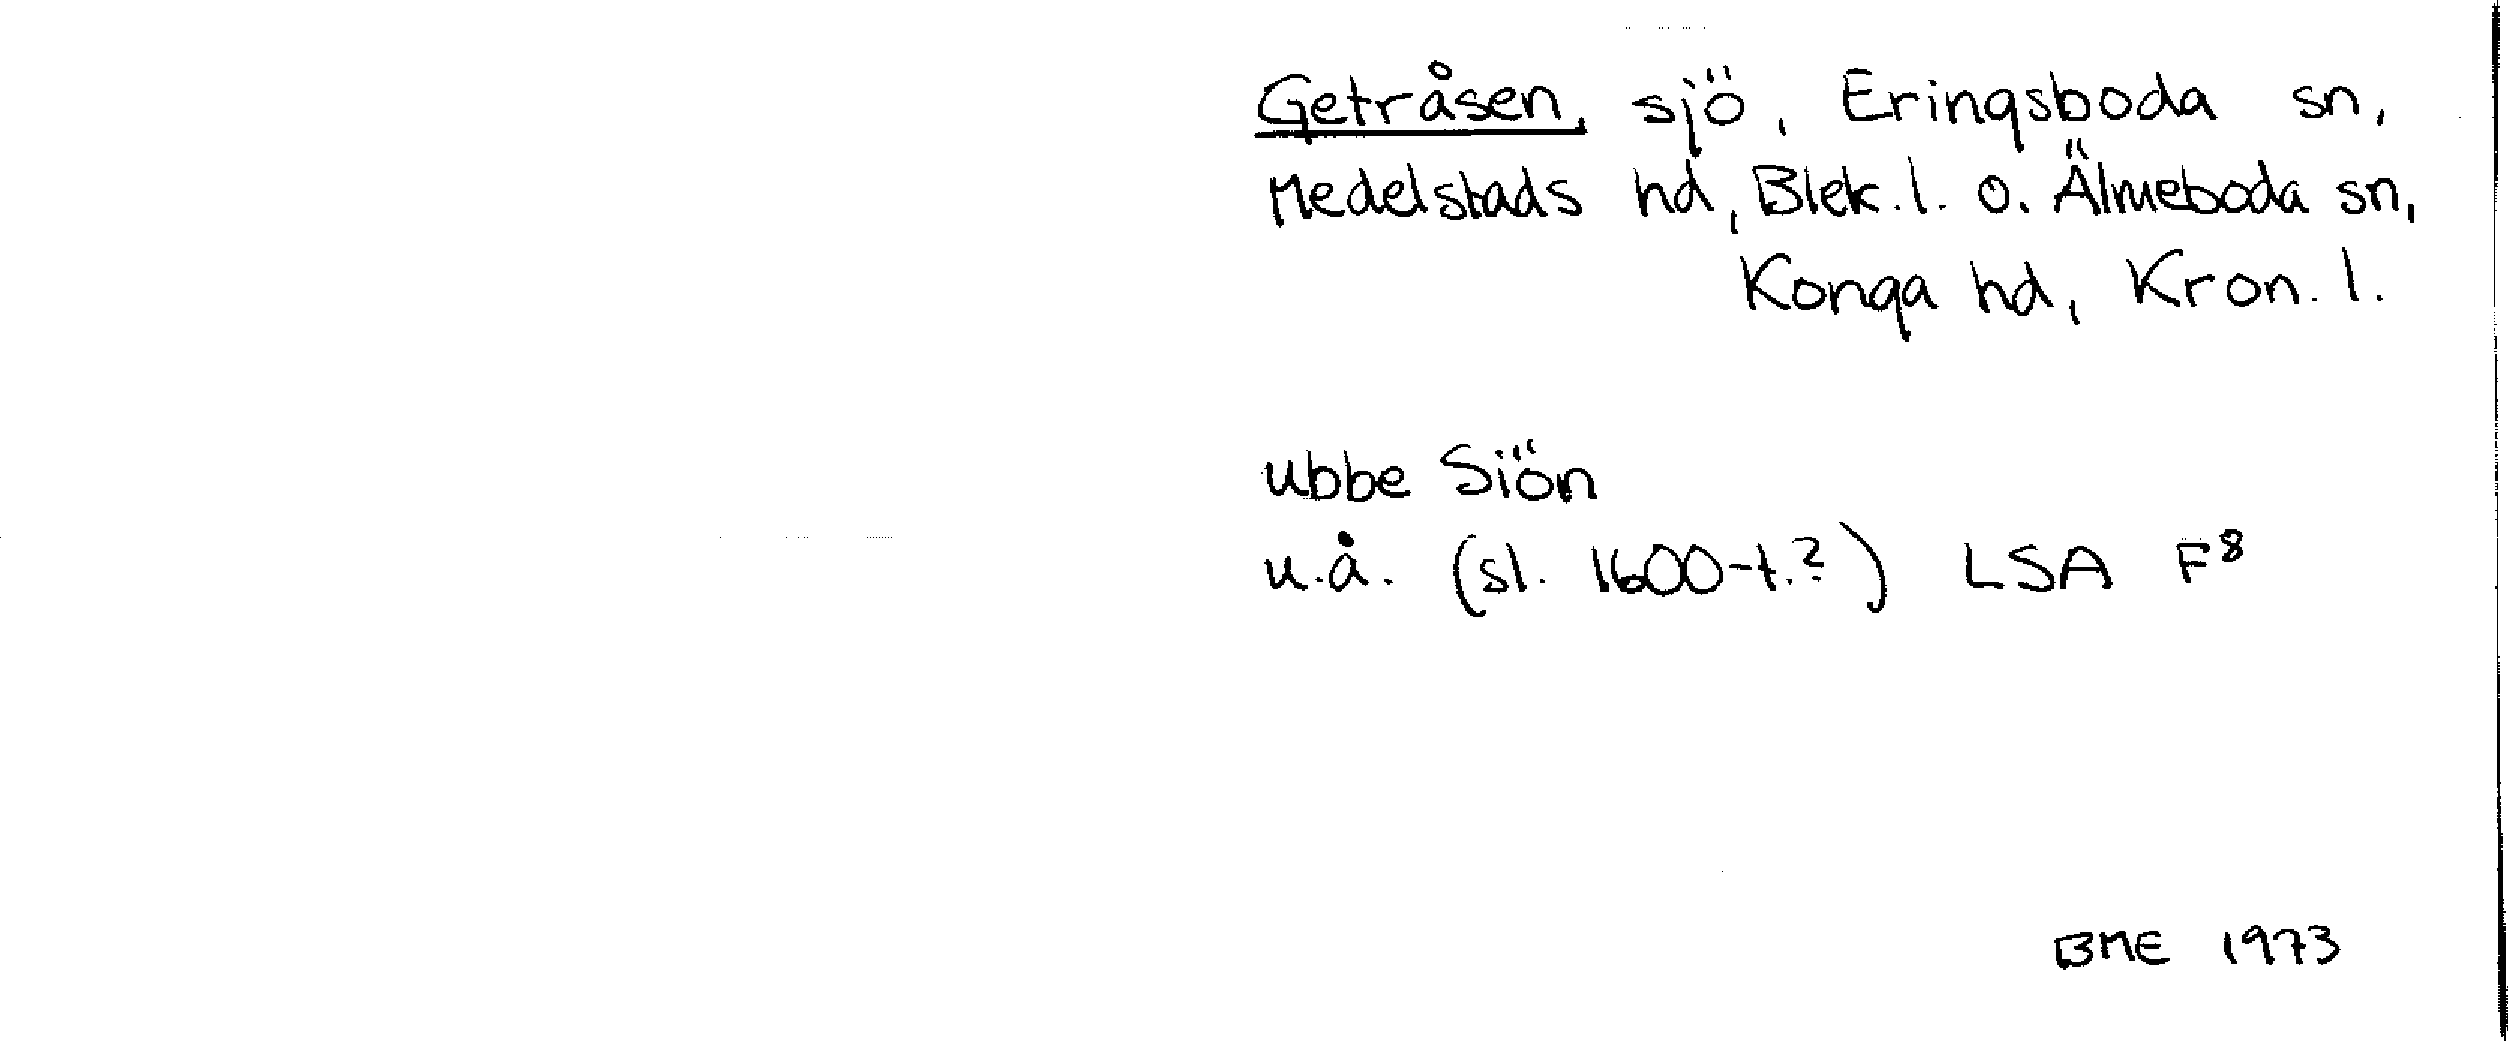 Getråsen, sjö, Eringsboda sn,
Medelstads hd, Blek. l. o. Älmeboda sn,
Konga hd, Kron. l.
ubbe Siön
u.å. (sl. 1600-t.?) LSA F⁸
BME 1973